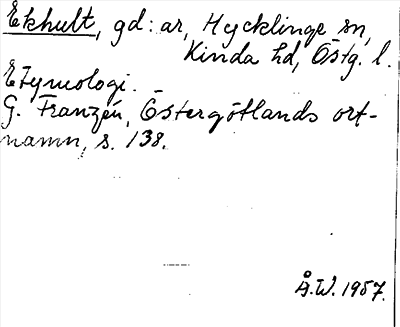 Ekhult, gd:ar, Hycklinge sn,
Kinda hd, Östg. l.
Etymologi.
G. Franzén, Östergötlands ort-
namn, s. 138.
Å.W. 1957.